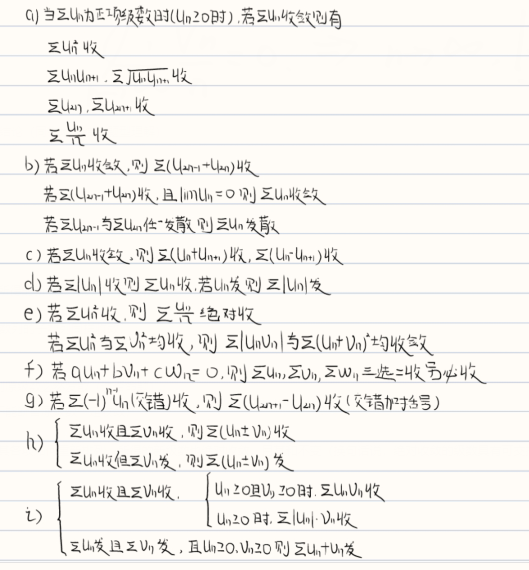 a) 当Σuₙ为正项级数时(uₙ≥0时), 若Σuₙ收敛则有
Σuₙ²收
Σuₙuₙ₊₁, Σ√(uₙuₙ₊₁)收
Σu₂ₙ, Σu₂ₙ₊₁收
Σuₙ/n 收
b) 若Σuₙ收敛, 则Σ(u₂ₙ₋₁+u₂ₙ)收
若Σ(u₂ₙ₋₁+u₂ₙ)收, 且limuₙ=0则Σuₙ收敛
若Σu₂ₙ₋₁与Σu₂ₙ任一发散则Σuₙ发散
c) 若Σuₙ收敛, 则Σ(uₙ+uₙ₊₁)收, Σ(uₙ-uₙ₊₁)收
d) 若Σ|uₙ|收则Σuₙ收, 若uₙ发则Σ|uₙ|发
e) 若Σuₙ²收, 则Σuₙ/n绝对收
若Σuₙ²与Σvₙ²均收, 则Σ|uₙvₙ|与Σ(uₙ+vₙ)²均收敛
f) 若auₙ+bvₙ+cwₙ=0, 则Σuₙ,Σvₙ,Σwₙ三选二收另必收
g) 若Σ(-1)ⁿ⁻¹uₙ(交错)收, 则Σ(u₂ₙ₊₁-u₂ₙ)收(交错加括号)
h) { Σuₙ收且Σvₙ收, 则Σ(uₙ±vₙ)收
Σuₙ收但Σvₙ发, 则Σ(uₙ±vₙ)发
i) { Σuₙ收且Σvₙ收, { uₙ≥0且vₙ≥0时, Σuₙvₙ收
uₙ≥0时, Σ|uₙ|·vₙ收
Σuₙ发且Σvₙ发, 且uₙ≥0,vₙ≥0则Σuₙ+vₙ发